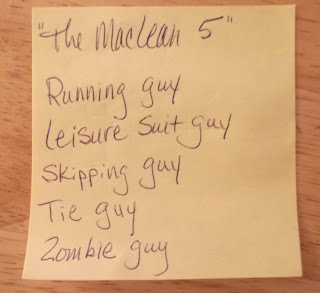 "The Maclean 5"
Running guy
Leisure Suit guy
Skipping guy
Tie guy
Zombie guy